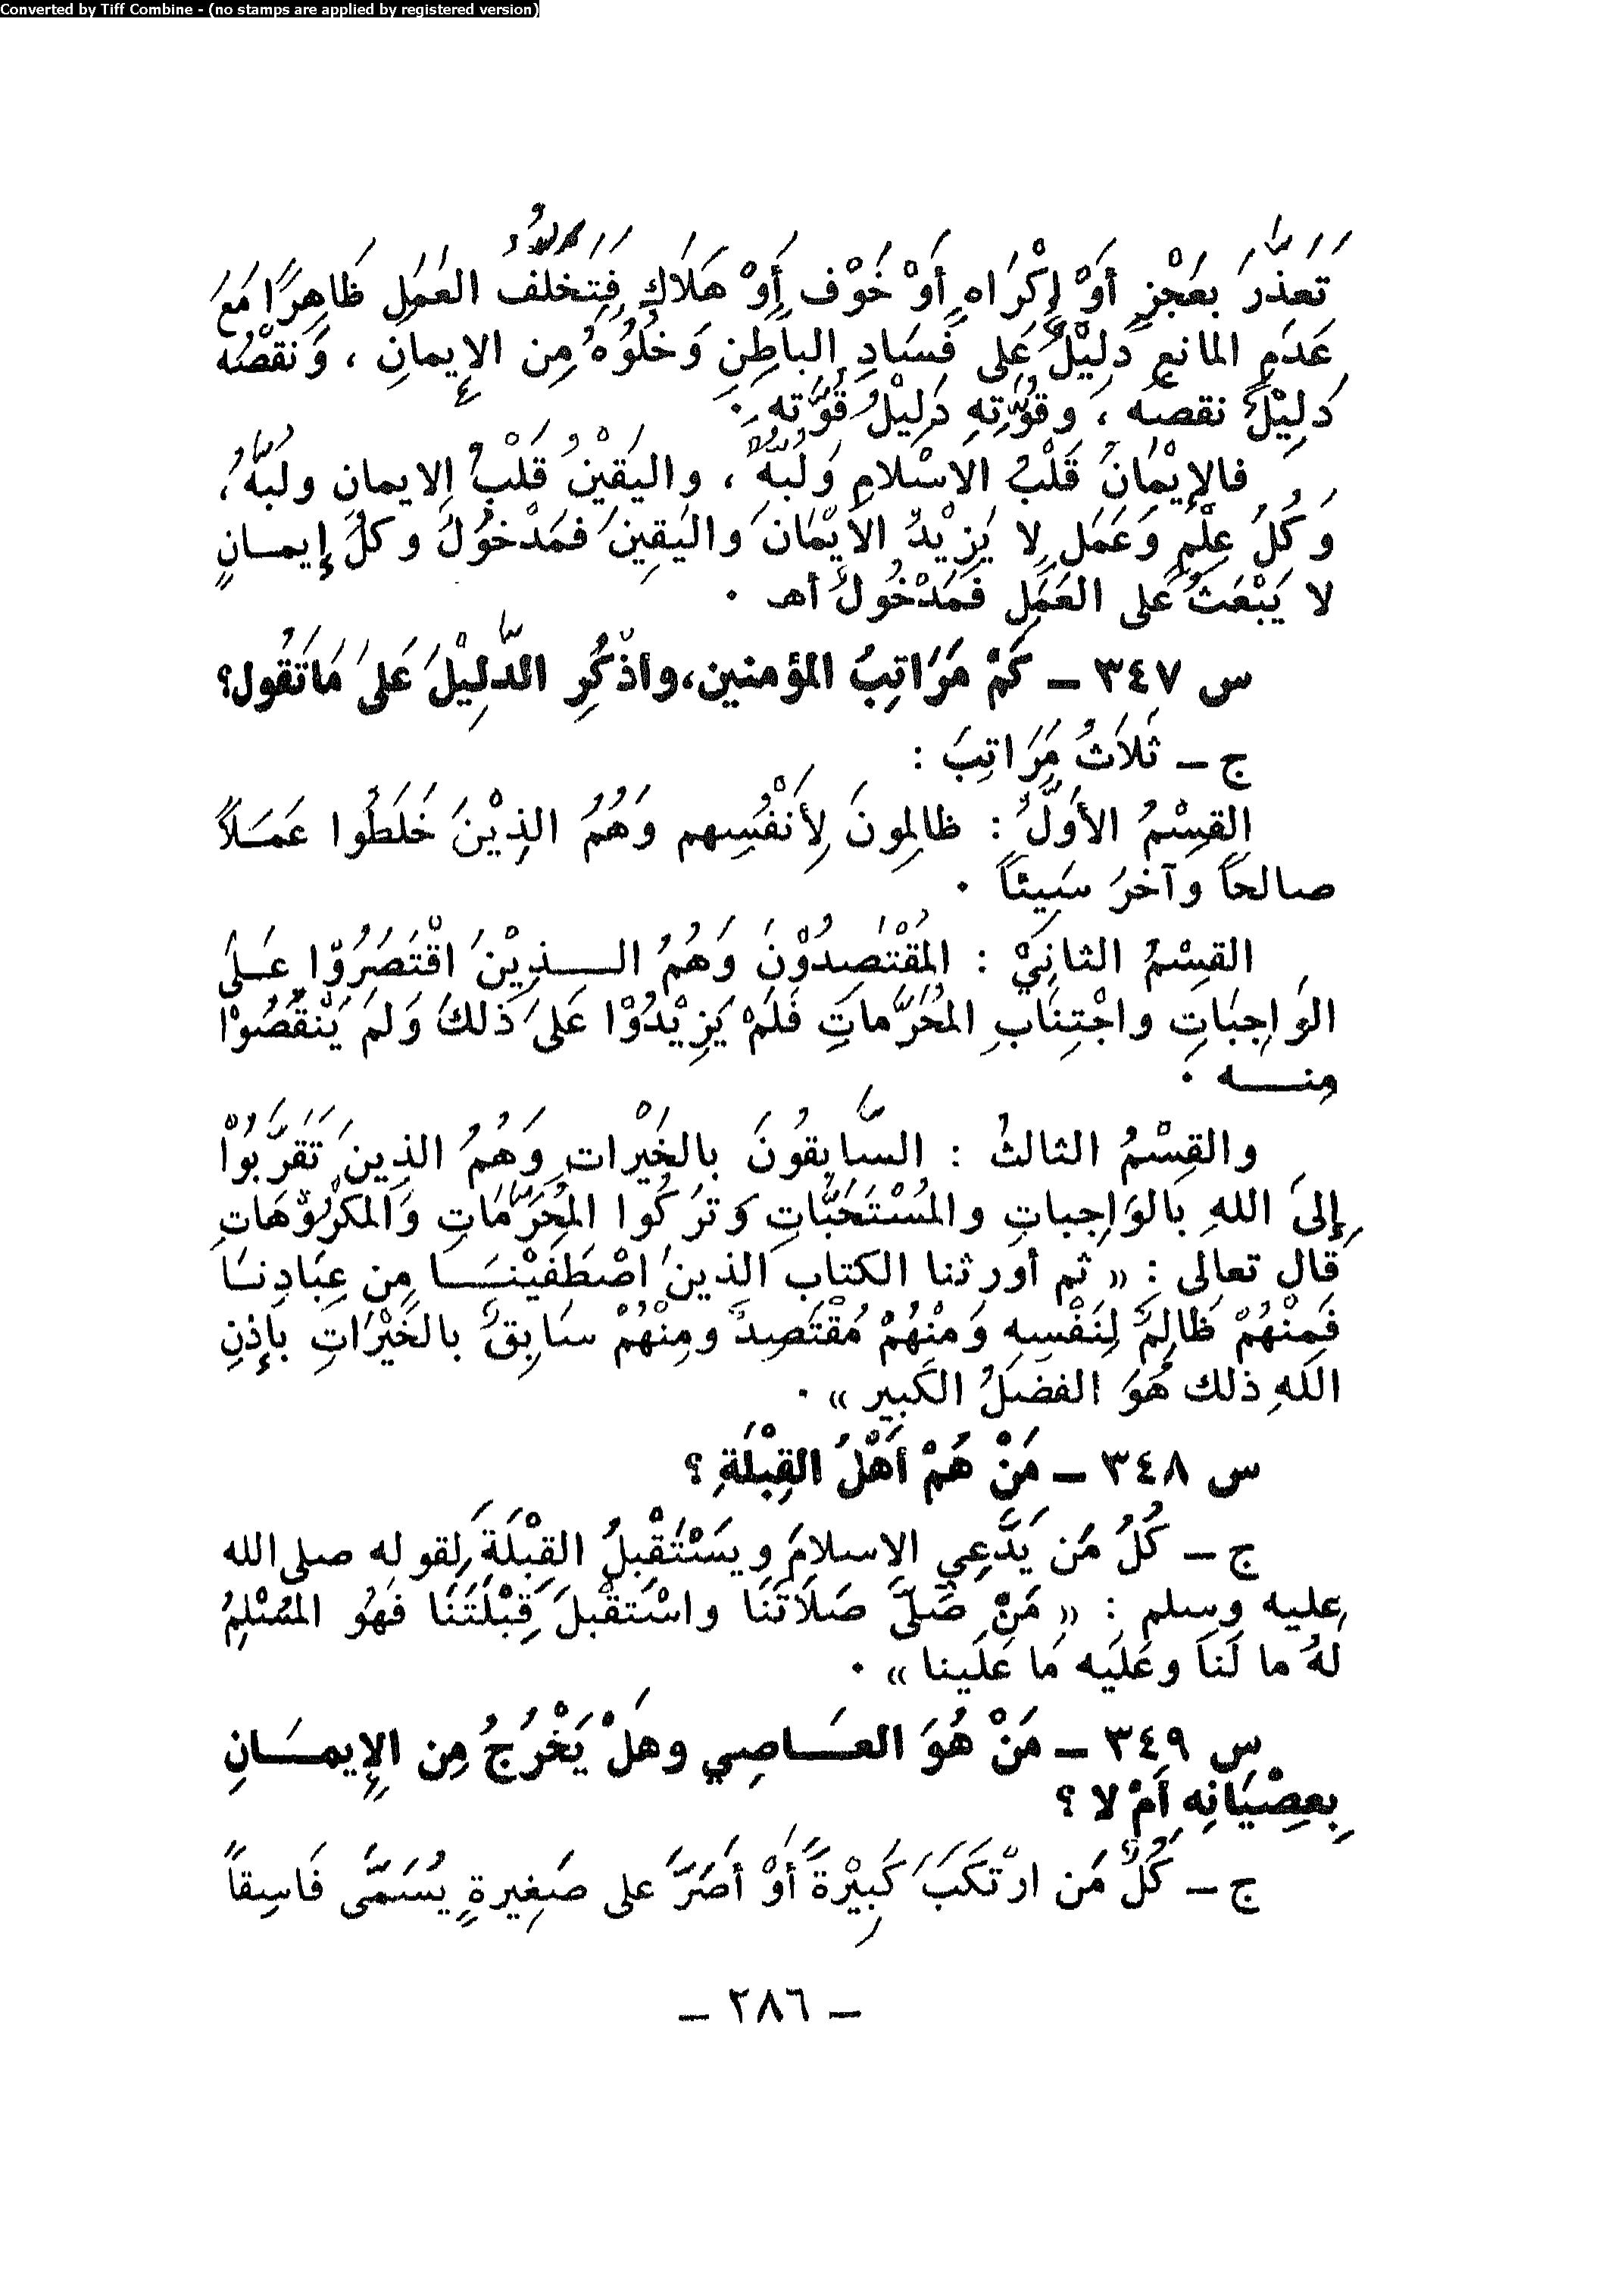 Converted by Tiff Combine - (no stamps are applied by registered version)
تَعَذَّرَ بعَجْزٍ أَوْ إكْرَاهٍ أَوْ خَوْف أَوْ هَلَاكٍ فَتَخَلُّفُ العَمَلِ ظَاهِرًا مَعَ
عَدَمِ المانعِ دَلِيْلٌ عَلى فَسَادِ الباطِنِ وَخُلُوُّهُ مِن الإِيمانِ ، وَنقْصُه
دَلِيْلُ نقصهُ ، وقُوَّتِهِ دَلِيْلُ قُوَّته ٠
فالإِيْمَانُ قَلْبُ الاسْلامِ وَلُبُّهُ ، واليَقِيْنُ قَلْبُ الايمانِ ولُبُّهُ ،
وَكُلُ عِلْمٍ وَعَمَلٍ لا يَزِيْدُ الايْمَانَ واليَقِينَ فمَدْخُولٌ وكلُّ إِيمـانٍ
لا يَبْعَثُ على العَمَلِ فَمَدْخُولٌ أهـ ٠
س ٣٤٧ – كَمْ مَرَاتِبُ المؤمنين،واذْكُرِ الدَّلِيْلَ عَلىَ مَاتَقُول؟
ج – ثَلاَثُ مَرَاتِبَ :
القِسْمُ الأَوَّلُ : ظالِمونَ لِأَنْفُسِهم وَهُمُ الذِيْنَ خَلَطُوا عَمَـلاً
صالحاً وآخرَ سَيِئاً ٠
القِسْمُ الثانِيْ : المُقْتَصِدُوْنَ وَهُمُ الـــذِيْنَ اقْتَصَرُوْا عَـلى
الوَاجِبَاتِ واجْتِنَابِ المُحَرَّماتِ فَلَمْ يَزِيْدُوْا عَلىَ ذَلكَ وَلَمَ يَنْقُصُوْا
مِنــــه ٠
والقِسْمُ الثالثُ : السَّابِقُونَ بالخَيْراتِ وَهُمُ الذِينَ تَقَرَّبُوْا
إِلىَ اللهِ بالوَاجِباتِ والمُسْتَحَبَّاتِ وَترَكُوا المُحَرَّمَاتِ وَالمَكْرُوْهَاتِ
قال تعالى : « ثم أورثنا الكتاب الذينَ اصْطَفَيْنــــا مِن عِبَادِنـا
فَمِنْهُمْ ظَالِمٌ لِنَفْسِهِ وَمنْهُمْ مُقْتَصِدٌ ومِنْهُمْ سَابِقٌ بالخَيْرَاتِ بإِذْنِ
اللهِ ذلك هُوَ الفضَلُ الكَبِير » ٠
س ٣٤٨ – مَنْ هُمْ أَهْلُ القِبْلَةِ ؟
ج – كُلُ مَن يَدَّعِي الاسلامَ ويَسْتَقْبِلُ القِبْلَةَ لِقوله صلى الله
عليه وسلم : « مَنْ صَلَّى صَلَاتَنَا واسْتَقْبلَ قِبْلَتَنَا فَهُو المُسْلِمُ
لهُ ما لَنَا وعَلَيه مَا عَلَينا » ٠
س ٣٤٩ – مَنْ هُوَ العَــاصِي وهَلْ يَخْرُجُ مِن الإِيمـَـانِ
بِعِصْيَانِه أَمْ لا ؟
ج – كُلُّ مَن ارْتكَبَ كَبِيْرةً أَوْ أَصَرَّ على صَغِيرةٍ يُسَمَّى فَاسِقاً
– ٢٨٦ –